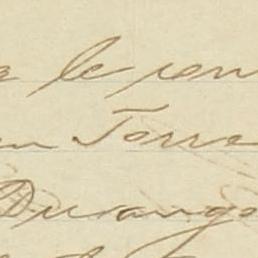 le ren
en Torre
Durango